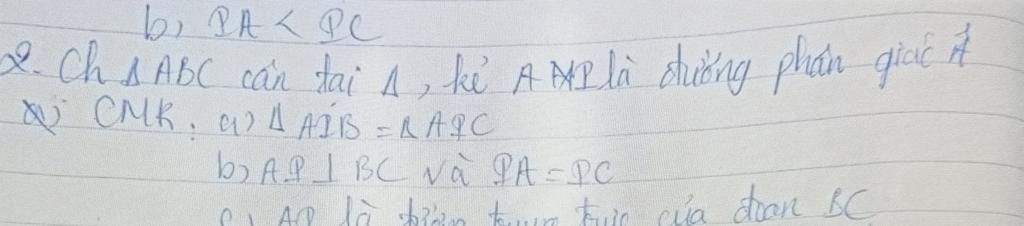 b) IA < IC
2. Ch Δ ABC cân tại A, kẻ AI là đường phân giác Â
CMR: a) Δ AIB = Δ AIC
b) AI ⊥ BC và IA = IC
c) AI là trung trực của đoạn BC